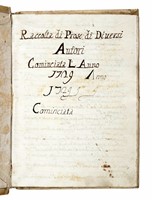 Raccolta di Prose di Diversi
Autori
Cominciata L Anno
1729 Anno
1729
Cominciata